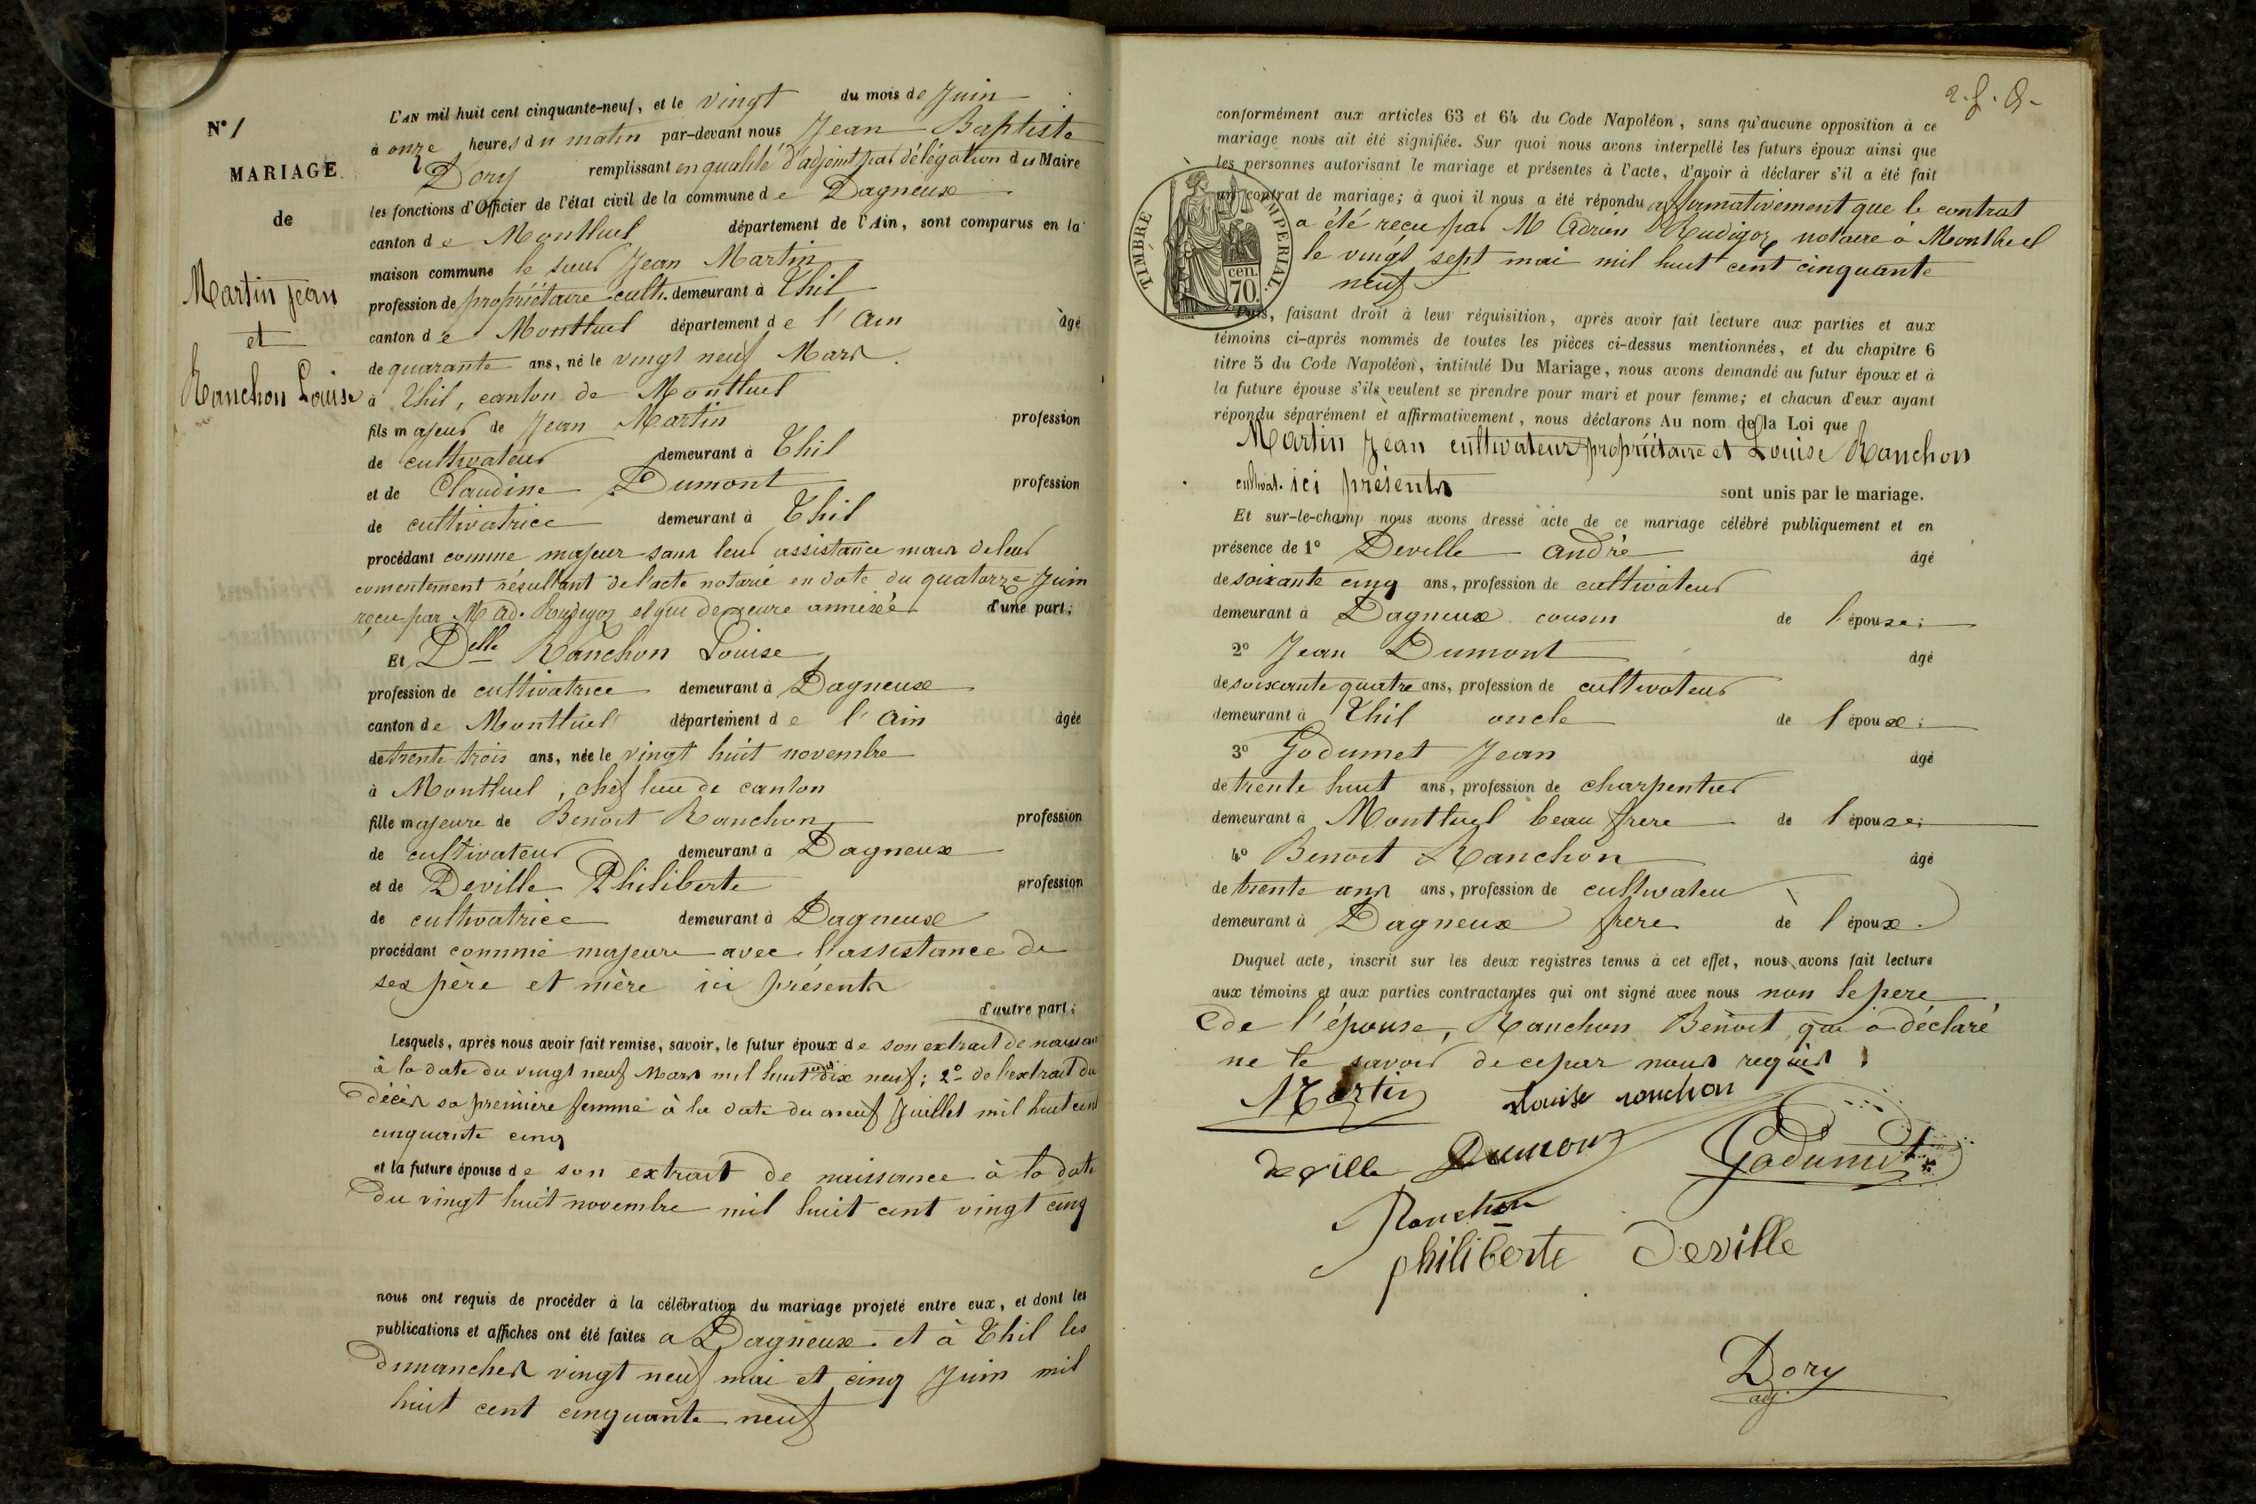 N° 1
MARIAGE
de
Martin Jean
et
Ranchon Louise
L'AN mil huit cent cinquante-neuf, et le vingt du mois de Juin
à onze heures du matin par-devant nous Jean Baptiste
Dory remplissant en qualité d'adjoint par délégation du Maire
les fonctions d'Officier de l'état civil de la commune de Dagneux
canton de Montluel département de l'Ain, sont comparus en la
maison commune le sieur Jean Martin
profession de propriétaire cult. demeurant à Thil
canton de Montluel département de l'Ain âgé
de quarante ans, né le vingt neuf Mars
à Thil, canton de Montluel
fils majeur de Jean Martin profession
de cultivateur demeurant à Thil
et de Claudine Dumont profession
de cultivatrice demeurant à Thil
procédant comme majeur sans leur assistance mais de leur
consentement résultant de l'acte notarié en date du quatorze Juin
reçu par M Ad. Rudigoz et qui demeure annexée d'une part;
Et Delle Ranchon Louise
profession de cultivatrice demeurant à Dagneux
canton de Montluel département de l'Ain âgée
de trente trois ans, née le vingt huit novembre
à Montluel, chef lieu de canton
fille majeure de Benoit Ranchon profession
de cultivateur demeurant à Dagneux
et de Deville Philiberte profession
de cultivatrice demeurant à Dagneux
procédant comme majeure avec l'assistance de
ses père et mère ici présents
d'autre part;
Lesquels, après nous avoir fait remise, savoir, le futur époux de son extrait de naissance
à la date du vingt neuf Mars mil huit cent dix neuf; 2° de l'extrait du
décès sa première femme à la date du neuf Juillet mil huit cent
cinquante cinq
et la future épouse de son extrait de naissance à la date
du vingt huit novembre mil huit cent vingt cinq
nous ont requis de procéder à la célébration du mariage projeté entre eux, et dont les
publications et affiches ont été faites à Dagneux et à Thil les
dimanches vingt neuf mai et cinq Juin mil
huit cent cinquante neuf
conformément aux articles 63 et 64 du Code Napoléon, sans qu'aucune opposition à ce
mariage nous ait été signifiée. Sur quoi nous avons interpellé les futurs époux ainsi que
les personnes autorisant le mariage et présentes à l'acte, d'avoir à déclarer s'il a été fait
un contrat de mariage; à quoi il nous a été répondu affirmativement que le contrat
a été reçu par M Adrien Rudigoz, notaire à Montluel
le vingt sept mai mil huit cent cinquante
neuf
TIMBRE IMPERIAL.
cen.
70.
Puis, faisant droit à leur réquisition, après avoir fait lecture aux parties et aux
témoins ci-après nommés de toutes les pièces ci-dessus mentionnées, et du chapitre 6
titre 5 du Code Napoléon, intitulé Du Mariage, nous avons demandé au futur époux et à
la future épouse s'ils veulent se prendre pour mari et pour femme; et chacun d'eux ayant
répondu séparément et affirmativement, nous déclarons Au nom de la Loi que
Martin Jean cultivateur propriétaire et Louise Ranchon
cultivat. ici présents sont unis par le mariage.
Et sur-le-champ nous avons dressé acte de ce mariage célébré publiquement et en
présence de 1° Deville andré âgé
de soixante cinq ans, profession de cultivateur
demeurant à Dagneux cousin de l'épouse;
2° Jean Dumont âgé
de soixante quatre ans, profession de cultivateur
demeurant à Thil oncle de l'époux;
3° Godumet Jean âgé
de trente huit ans, profession de charpentier
demeurant à Montluel beau frere de l'épouse;
4° Benoit Ranchon âgé
de trente ans ans, profession de cultivateu
demeurant à Dagneux frere de l'époux.
Duquel acte, inscrit sur les deux registres tenus à cet effet, nous avons fait lecture
aux témoins et aux parties contractantes qui ont signé avec nous non le pere
de l'épouse, Ranchon Benoit qui a déclaré
ne le savoir de ce par nous requis
Martin Louise ronchon
deville Dumont Godumet
Ranchon
philiberte Deville
Dory
adj.